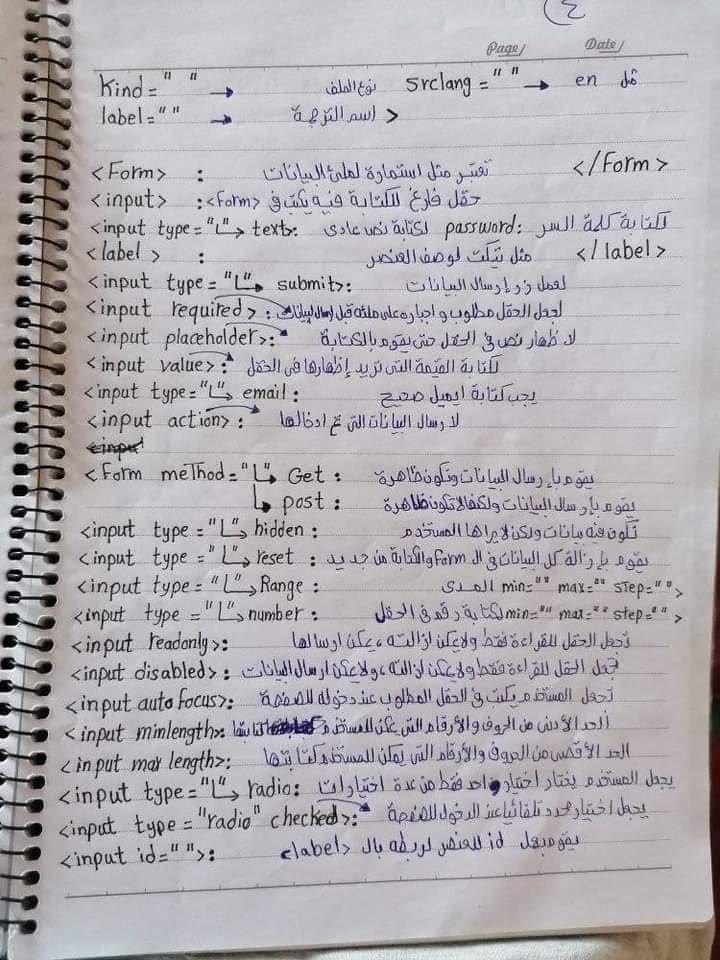 ٤
Page/ Date/
Kind = " " → نوع الملف srclang = " " → en مثل
label = " " → اسم الترجمة >
<Form> : تعتبر مثل استمارة لملئ البيانات </Form>
<input> : <form> حقل فارغ للكتابة فيه يكتب في
<input type = "↳ text: لكتابة نص عادي password: لكتابة كلمة السر
<label> : مثل تيكت لوصف العنصر </label>
<input type = "↳ submit>: لعمل زر إرسال البيانات
<input required>: لجعل الحقل مطلوب و إجباره على ملئه قبل إرسال البيانات
<input placeholder>: لاظهار نص في الحقل حتى يقوم بالكتابة
<input value>: لكتابة القيمة التي نريد إظهارها في الحقل
<input type = "↳ email: يجب كتابة ايميل صحيح
<input action>: لارسال البيانات التي تم ادخالها
<input
<Form meThod = "↳ Get: يقوم بإرسال البيانات وتكون ظاهرة
↳ post: يقوم بإرسال البيانات ولكن لا تكون ظاهرة
<input type = "↳ hidden: تكون فيه بيانات ولكن لا يراها المستخدم
<input type = "↳ reset: يقوم بإزالة كل البيانات في ال Form والكتابة من جديد
<input type = "↳ Range: المدى min="" max="" step="">
<input type = "↳ number: لكتابة رقم في الحقل min="" max="" step="">
<input readonly>: تجعل الحقل للقراءة فقط ولا يمكن ازالته ، يمكن ارسالها
<input disabled>: تجعل الحقل للقراءة فقط ولا يمكن ازالته ، ولا يمكن ارسال البيانات
<input auto focus>: تجعل المستخدم يكتب في الحقل المطلوب عند دخوله للصفحة
<input minlength>: الحد الأدنى من الحروف والأرقام التي يمكن للمستخدم كتابتها
<input max length>: الحد الأقصى من الحروف والأرقام التي يمكن للمستخدم كتابتها
<input type = "↳ radio: يجعل المستخدم يختار اختيار واحد فقط من عدة اختيارات
<input type = "radio" checked>: يجعل اختيار محدد تلقائيا عند الدخول للصفحة
<input id=" ">: يقوم بعمل id للعنصر لربطه بال <label>